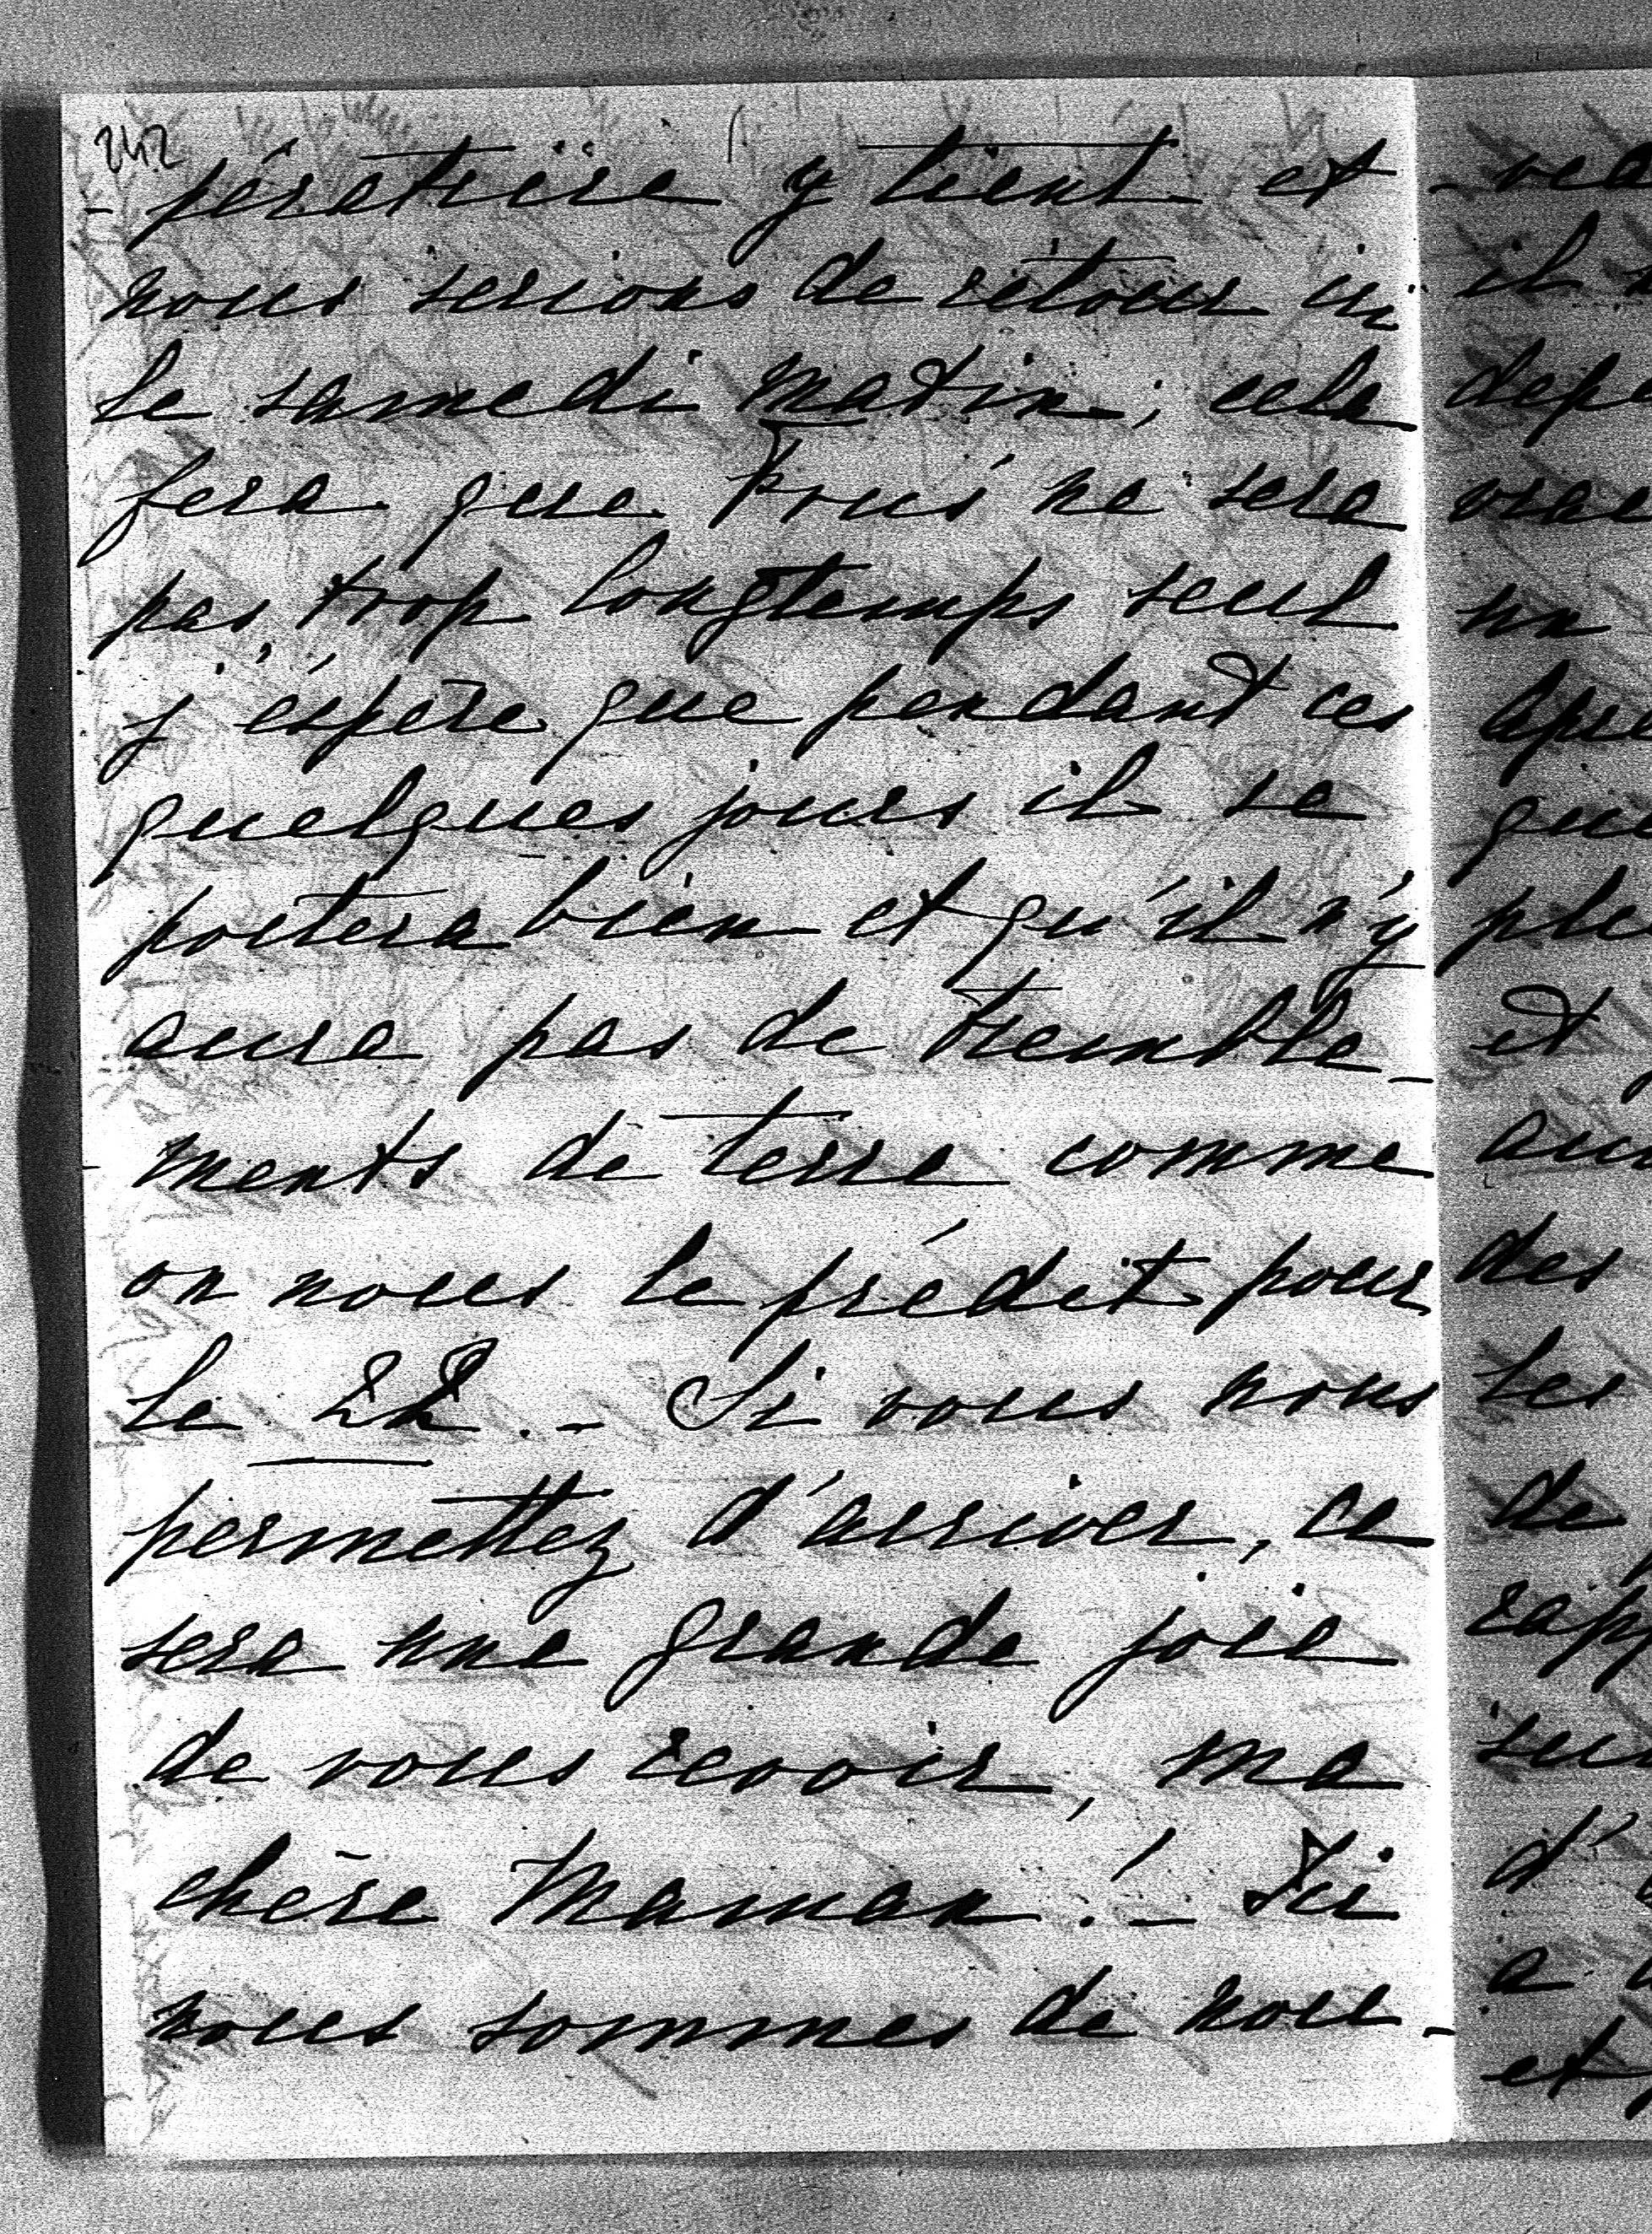 242
- pératrice y tient et
nous serions de retour ici
le samedi matin; cela
fera que Pous' ne sera
pas trop longtemps seul
j'espère que pendant ces
quelques jours il se
portera bien et qu'il n'y
aura pas de tremble-
ments de terre comme
on nous le prédit pour
le 22. - Si vous nous
permettez d'arriver, ce
sera une grande joie
de vous revoir, ma
chère Maman! - Ici
nous sommes de nou-
il
un
et
des
les
de
d'
a
et